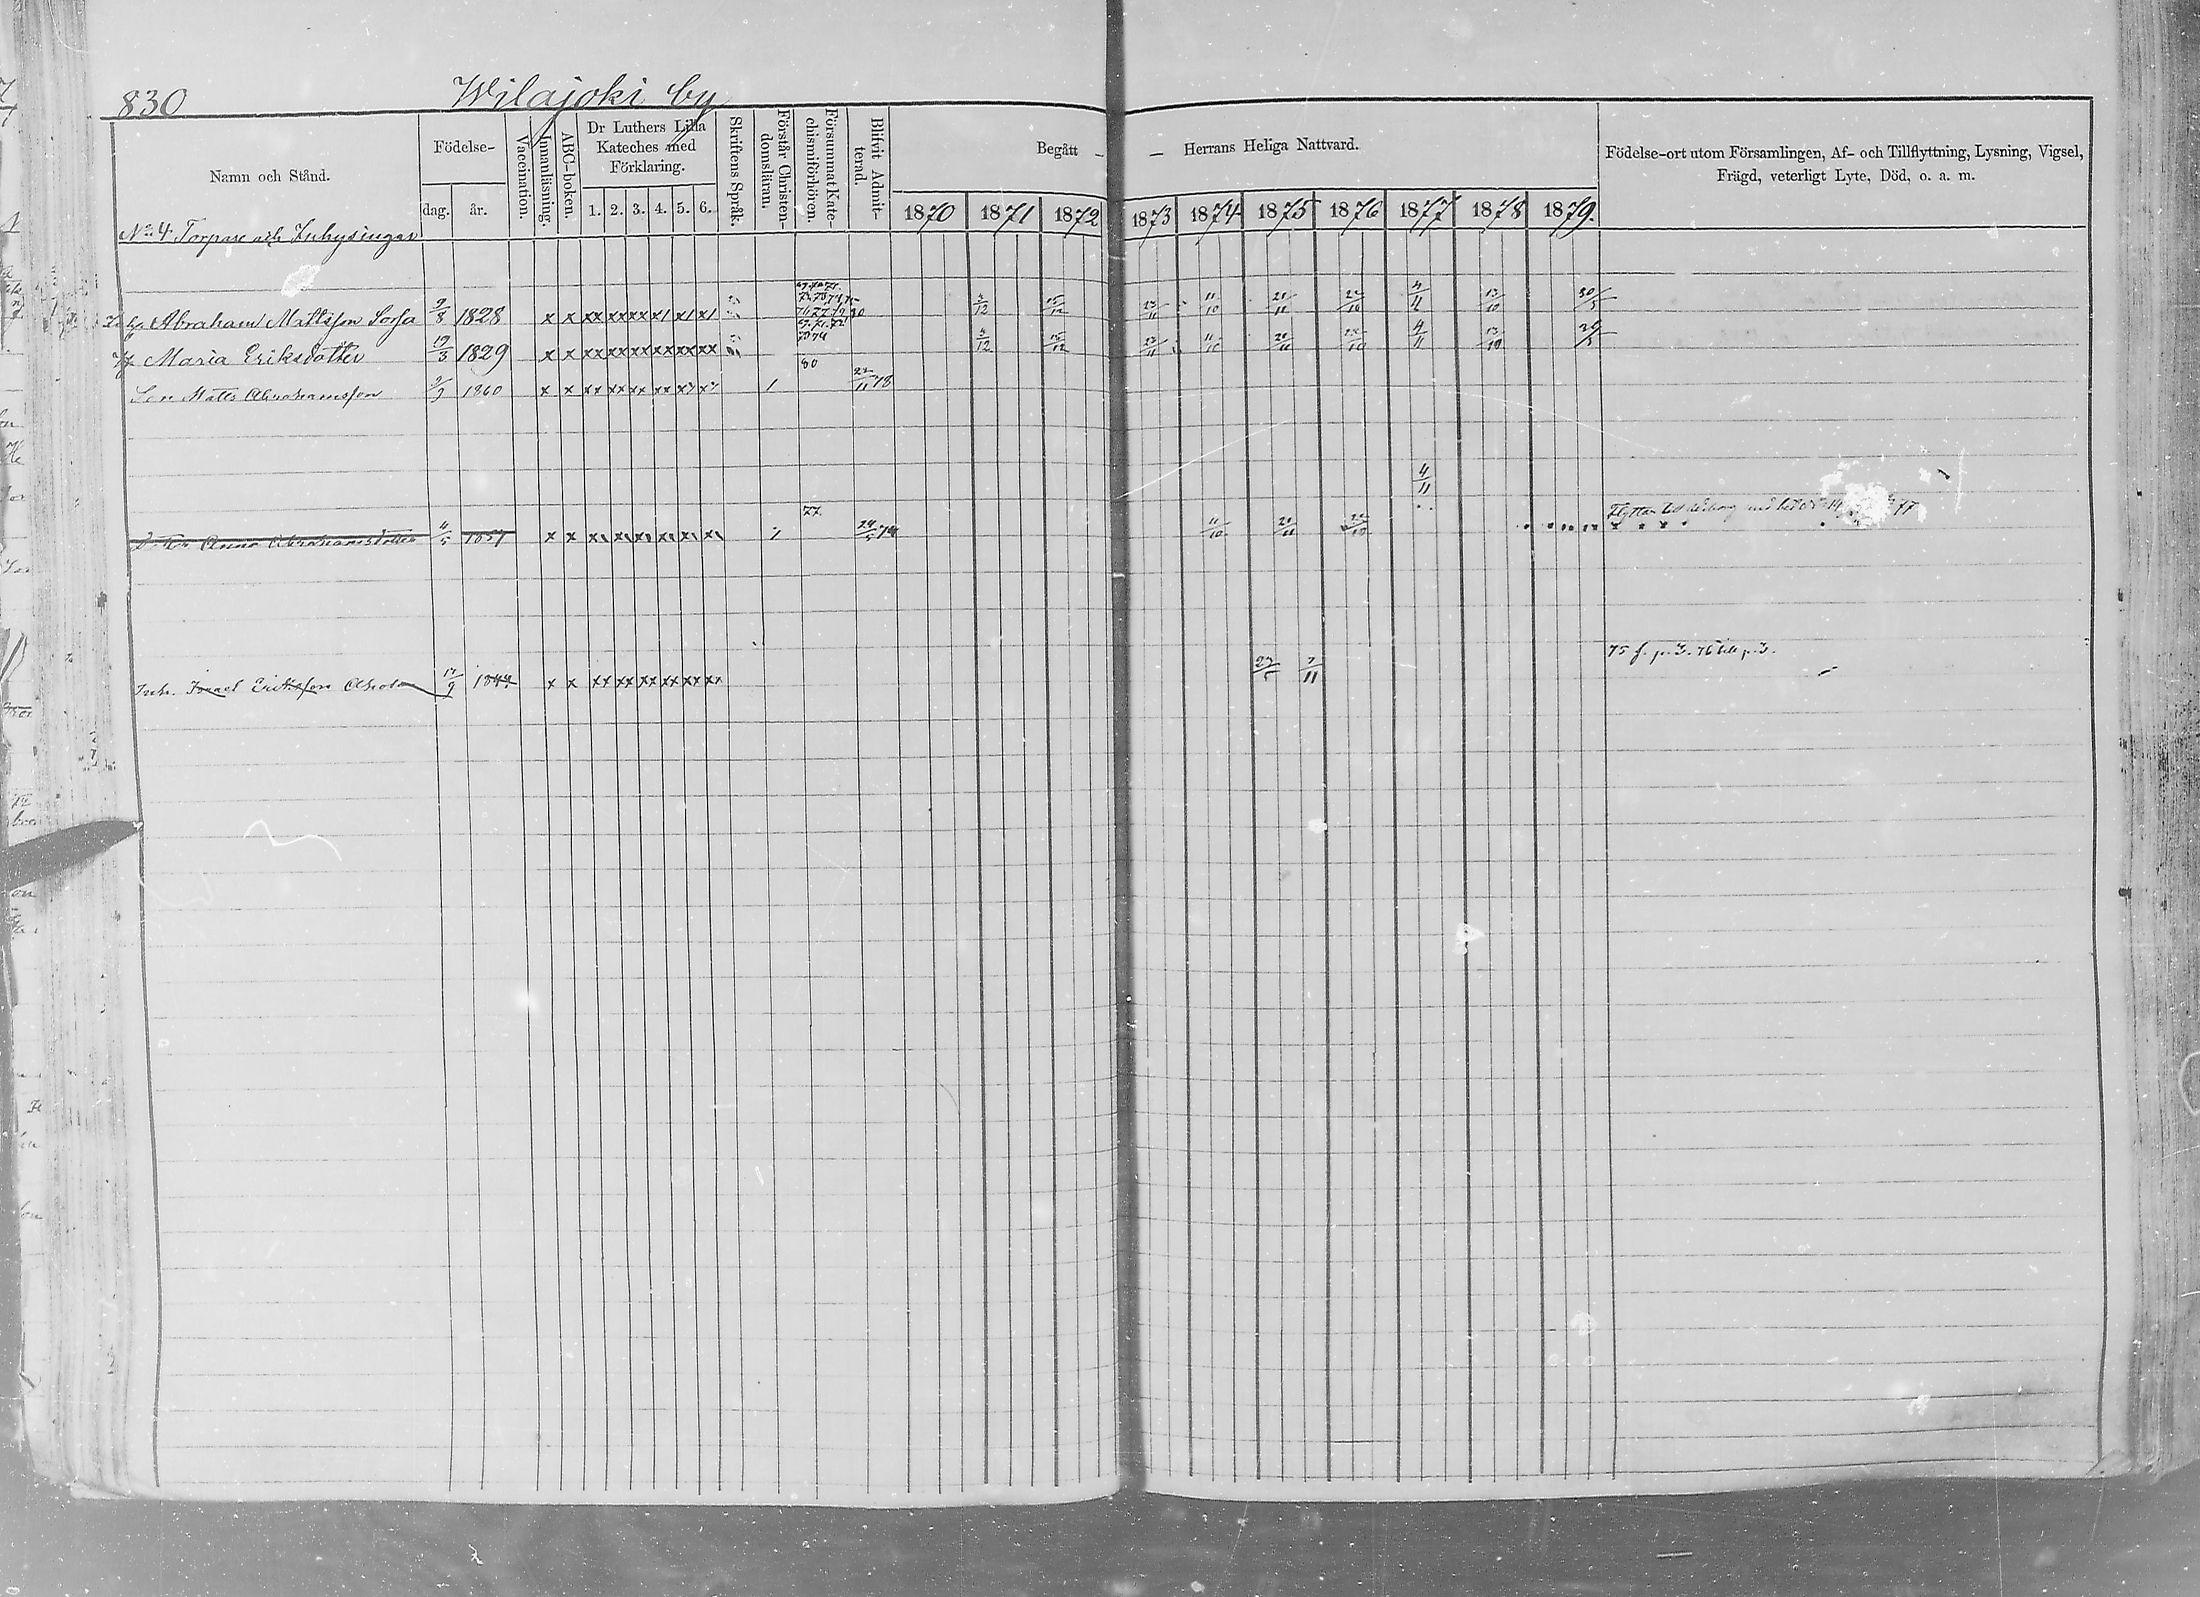 830
Wilajoki by
Namn och Stånd.
Födelse-
dag. år.
Vaccination.
Innanläsning.
ABC-boken.
Dr Luthers Lilla
Kateches med
Förklaring.
1. 2. 3. 4. 5. 6.
Skriftens Språk.
Förstår Christen-
domsläran.
Försummat Kate-
chismiförhören.
Blifvit Admit-
terad.
Begått — — Herrans Heliga Nattvard.
1870 1871 1872 1873 1874 1875 1876 1877 1878 1879.
Födelse-ort utom Församlingen, Af- och Tillflyttning, Lysning, Vigsel,
Frägd, veterligt Lyte, Död, o. a. m.
No 4 Torpare och Inhysingar
Abraham Mattsson Sorsa 9/8 1828 x x xx xx xx x/ x/ x/ 3/12 15/12 23/11 11/10 21/11 22/10 4/11 13/10 30/5
Maria Eriksdotter 19/3 1829 x x xx xx xx xx xx xx 3/12 15/12 23/11 11/10 21/11 22/10 4/11 13/10 29/5
80
Son Matts Abrahamsson 2/9 1860 x x xx xx xx xx x/ x/ / 22/11 78
4/11
77
Anna Abrahamsdotter 11/5 1857 x x / 24/5 74 11/10 21/11 22/10
75 f. p. 3. 76 till p. 3.
Inh. Israel Eriksson 17/9 x x xx xx xx xx xx xx 7/11